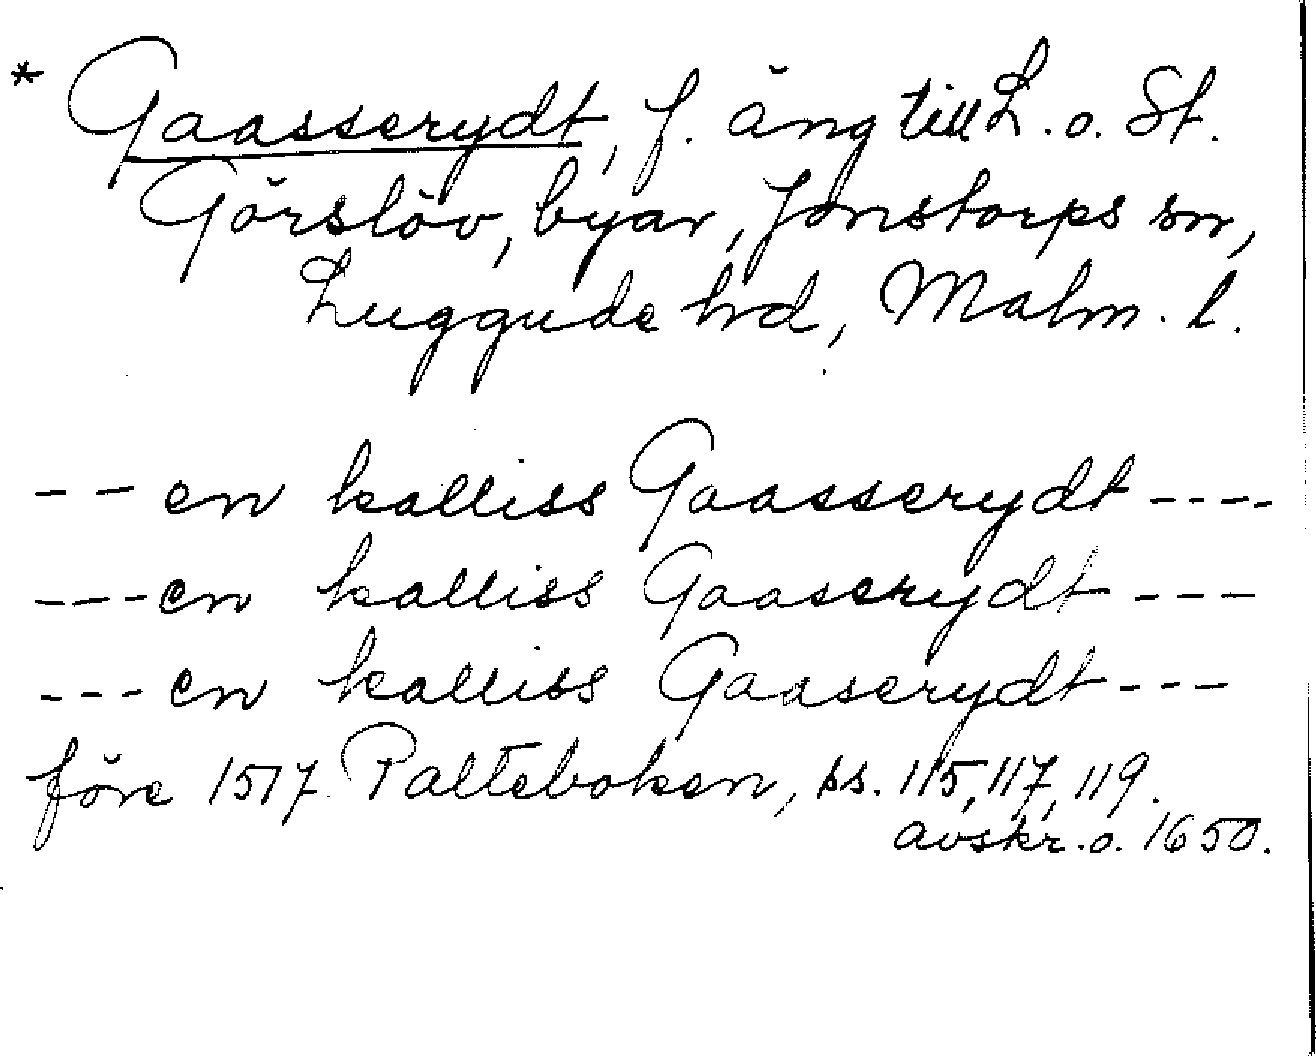 * Gaasserydt, f. äng till L. o. St.
Görslöv, byar, Jonstorps sn,
Luggude hd, Malm. l.
-- en kalliss Gaasserydt ----
--- en kalliss Gaaserydt ---
--- en kalliss Gaaserydt ---
före 1517 Palteboken, ss. 115, 117, 119.
avskr. o. 1650.